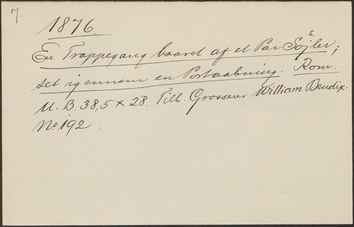 7
1876
En Trappegang baaret af et Par Søjler,
set igennem en Portaabning. Rom.
M. B. 38,5 x 28 Till. Grosserer William Bendix.
No 192.